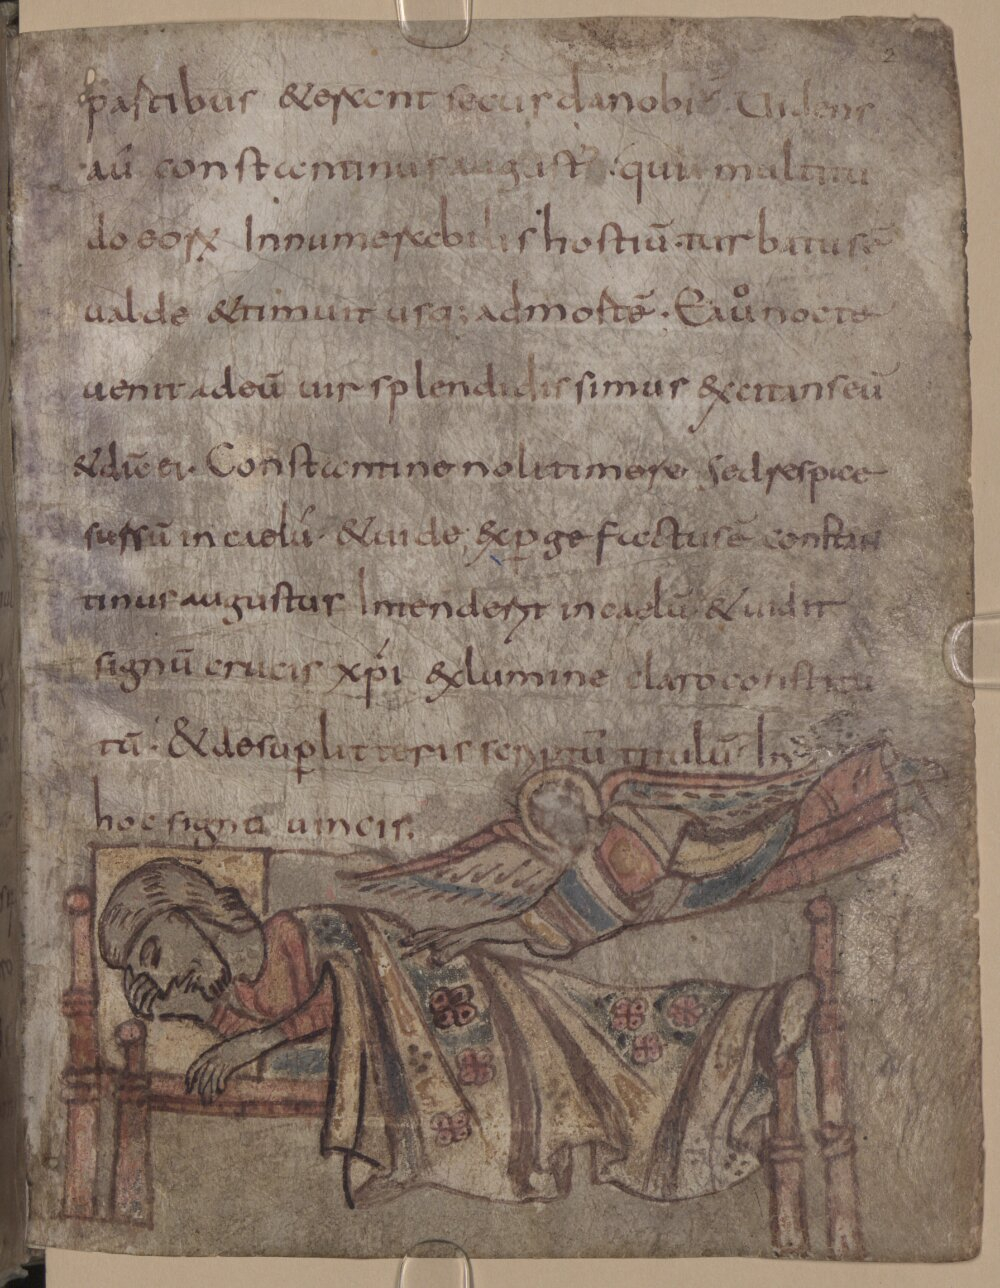 2
partibus & erant secus danobiū Uidens
aū constantinus august; quia multitu
do eorum Innumerabilis hostiū turbatus ē
ualde & timuit usq; ad mortē. Ea uͦ nocte
uenit ad eū uir splendidissimus & excitans eū
& dix ei. Constantine noli timere sed respice
sursū in caelū & uide, exp̱gefactus ē constan
tinus augustus Intendens in caelū & uidit
signū crucis xp̄i ex lumine claro constitu
tū. & desup̱ litteris scriptū titulū In
hoc signo uincis.